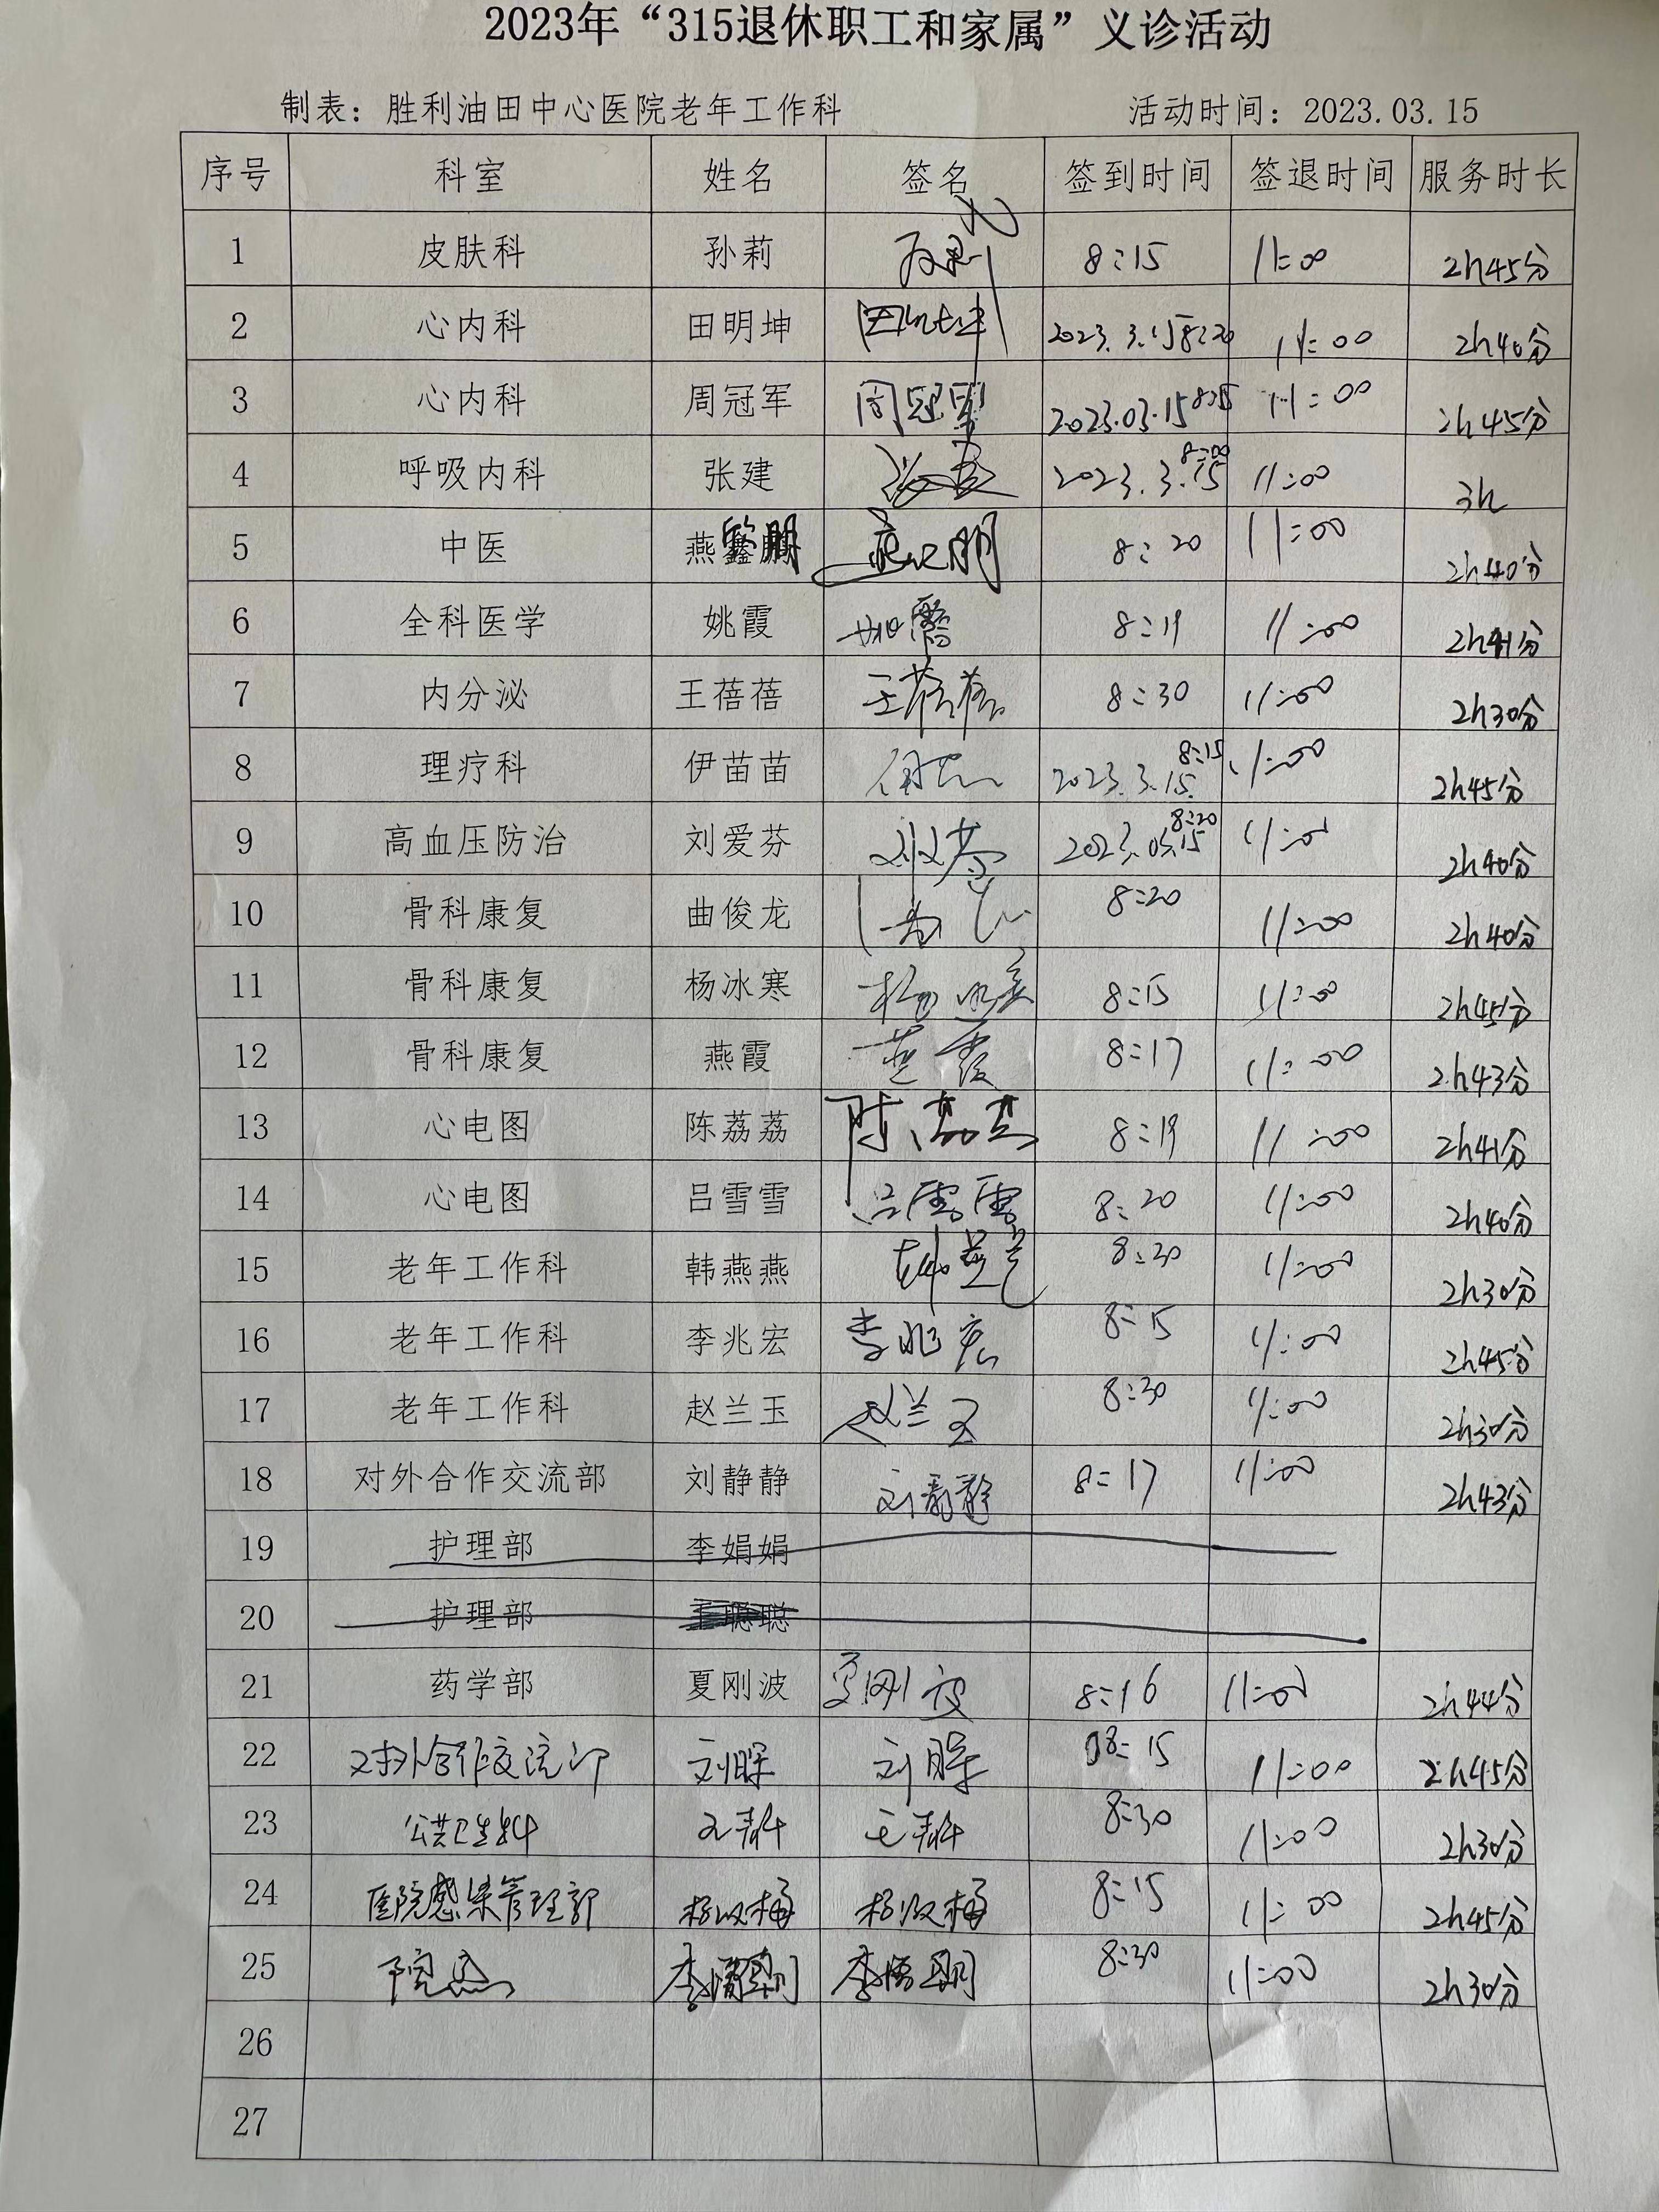 2023年“315退休职工和家属”义诊活动
制表：胜利油田中心医院老年工作科 活动时间：2023.03.15
序号 科室 姓名 签名 签到时间 签退时间 服务时长
1 皮肤科 孙莉 8:15 11:00 2h45分
2 心内科 田明坤 田明坤 2023.3.15 8:20 11:00 2h40分
3 心内科 周冠军 周冠军 2023.03.15 8:15 11:00 2h45分
4 呼吸内科 张建 张建 2023.3.15 8:00 11:00 3h
5 中医 燕 8:20 11:00 2h40分
6 全科医学 姚霞 姚霞 8:19 11:00 2h41分
7 内分泌 王蓓蓓 王蓓蓓 8:30 11:00 2h30分
8 理疗科 伊苗苗 2023.3.15. 8:15 11:00 2h45分
9 高血压防治 刘爱芬 2023.03.15 8:20 11:00 2h40分
10 骨科康复 曲俊龙 8:20 11:00 2h40分
11 骨科康复 杨冰寒 杨冰寒 8:15 11:00 2h45分
12 骨科康复 燕霞 燕霞 8:17 11:00 2h43分
13 心电图 陈荔荔 陈荔荔 8:19 11:00 2h41分
14 心电图 吕雪雪 吕雪雪 8:20 11:00 2h40分
15 老年工作科 韩燕燕 8:30 11:00 2h30分
16 老年工作科 李兆宏 李兆宏 8:15 11:00 2h45分
17 老年工作科 赵兰玉 赵兰玉 8:30 11:00 2h30分
18 对外合作交流部 刘静静 刘静静 8:17 11:00 2h43分
19 护理部 李娟娟
20 护理部 王聪聪
21 药学部 夏刚波 夏刚波 8:16 11:00 2h44分
22 对外合作交流部 刘晖 刘晖 8:15 11:00 2h45分
23 公共卫生科 8:30 11:00 2h30分
24 医院感染管理部 8:15 11:00 2h45分
25 8:30 11:00 2h30分
26
27